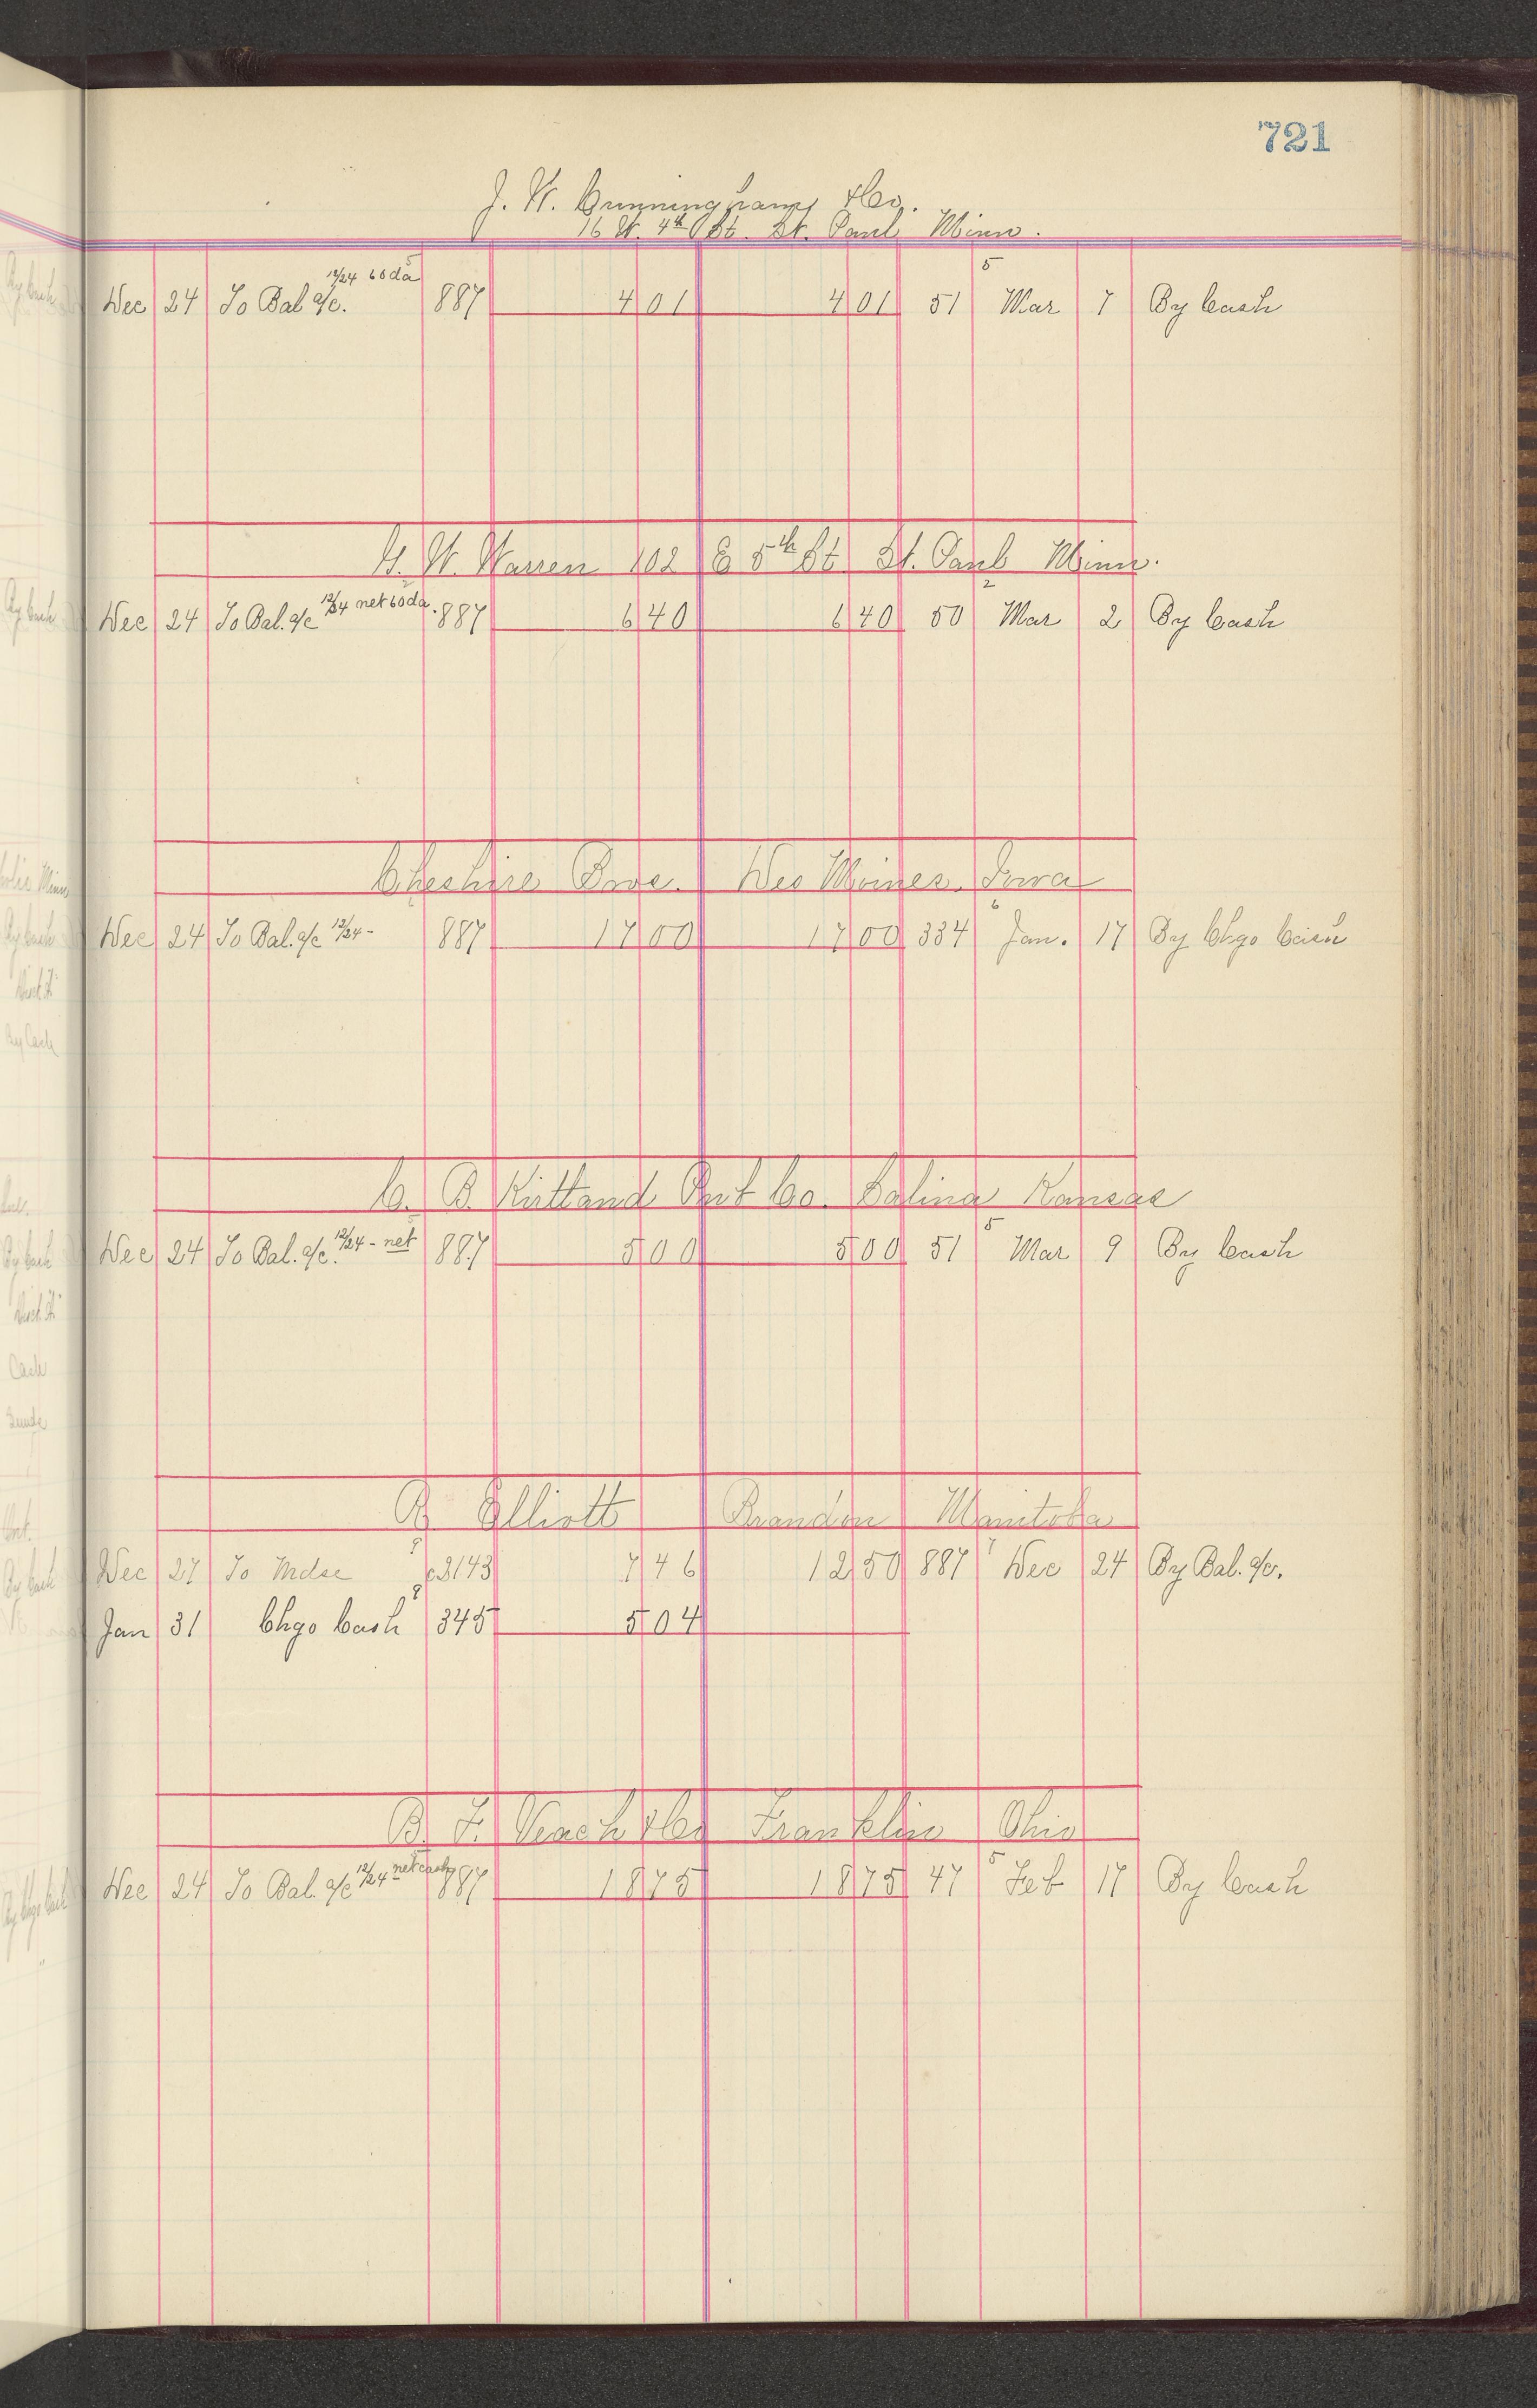 721
J. W. Cunningham & Co.
16 W. 4th St. St. Paul Minn.
12/24 60 da 5
Dec 24 To Bal a/c. 887 4 01 4 01 51 Mar 7 By Cash
G. W. Warren 102 E 5th St St. Paul Minn.
12/24 net 60 da. 2
Dec 24 To Bal. a/c 887 6 40 6 40 50 Mar 2 By Cash
Cheshire Bros. Des Moines Iowa
6
Dec 24 To Bal. a/c 12/24 - 887 17 00 17 00 334 Jan. 17 By Chgo Cash
C. B. Kirtland Co. Salina Kansas
12/24 - net 5
Dec 24 To Bal. a/c. 887 5 00 5 00 51 Mar 9 By Cash
R Elliott Brandon Manitoba
Dec 27 To Mdse c3143 7 46 12 50 887 Dec 24 By Bal. a/c.
Jan 31 Chgo Cash 345 5 04
B. F. Veach & Co Franklin Ohio
12/24 net cash 5
Dec 24 To Bal. a/c 887 18 75 18 75 47 Feb 17 By Cash